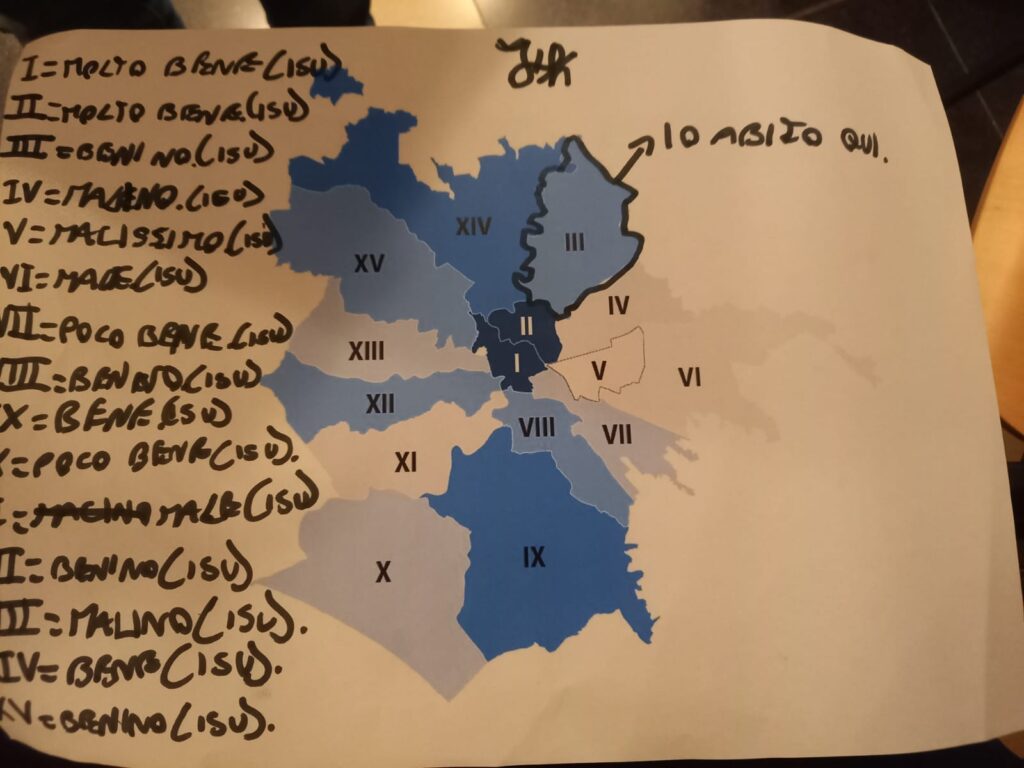 I=MOLTO BENE(ISU)
II=MOLTO BENE.(ISU)
III=BENINO.(ISU)
IV=MALENO.(ISU)
V=MALISSIMO(ISU)
VI=MALE(ISU)
VII=POCO BENE.(ISU)
III=BENINO(ISU)
X=BENE(ISU)
X=POCO BENE(ISU).
MALE(ISU)
II=BENINO(ISU)
III=MALINO(ISU).
IV=BENE(ISU).
XV=BENINO(ISU).
IO ABITO QUI.
XIV
III
XV
IV
II
XIII
I
V
VI
XII
VIII
VII
XI
X
IX